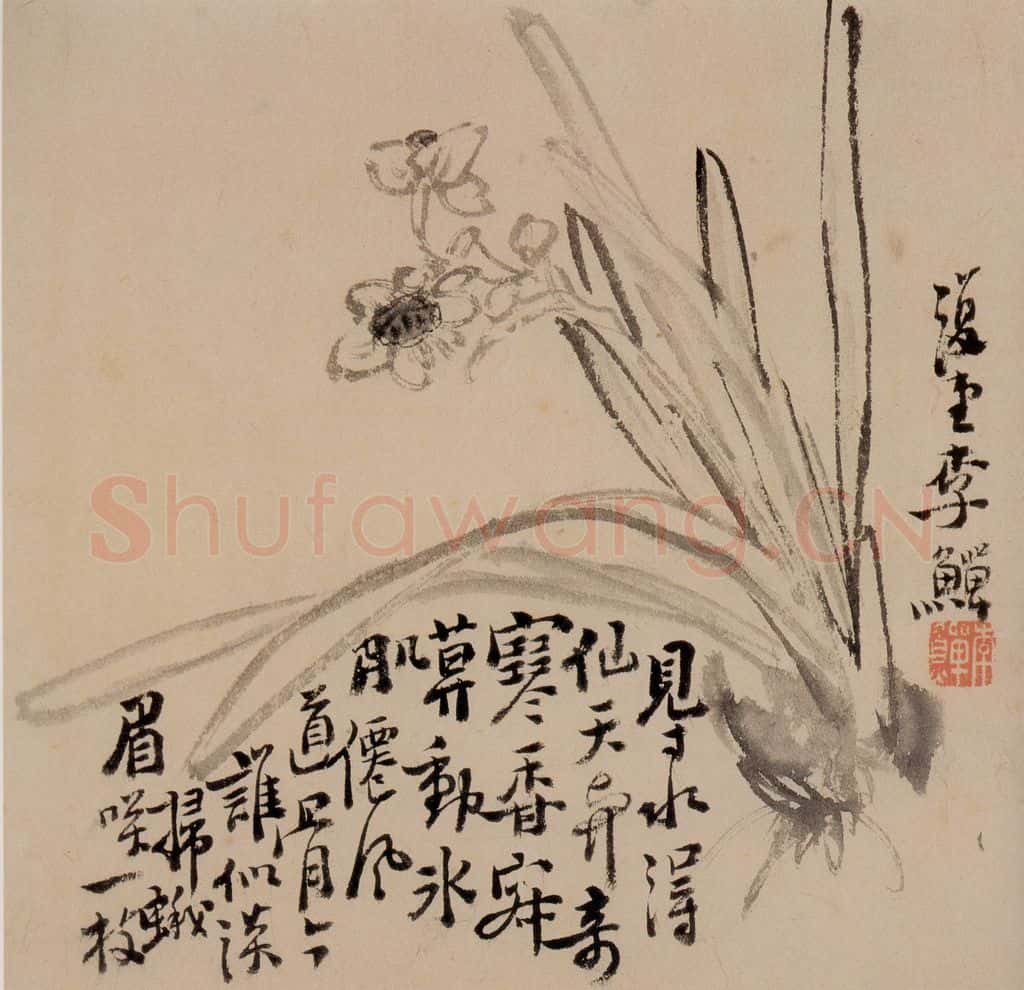 復堂李鱓
見寸水淂
仙天與奇
寒香寂
嗼動氷
肌僊風
道骨今
誰似淡
掃蛾
眉咲一枝
Shufawang.CN